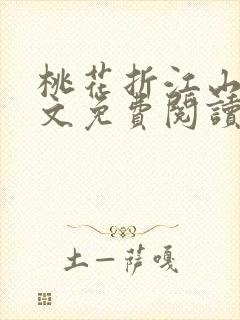 桃花折江山
文免費閱讀
土一萨嘎